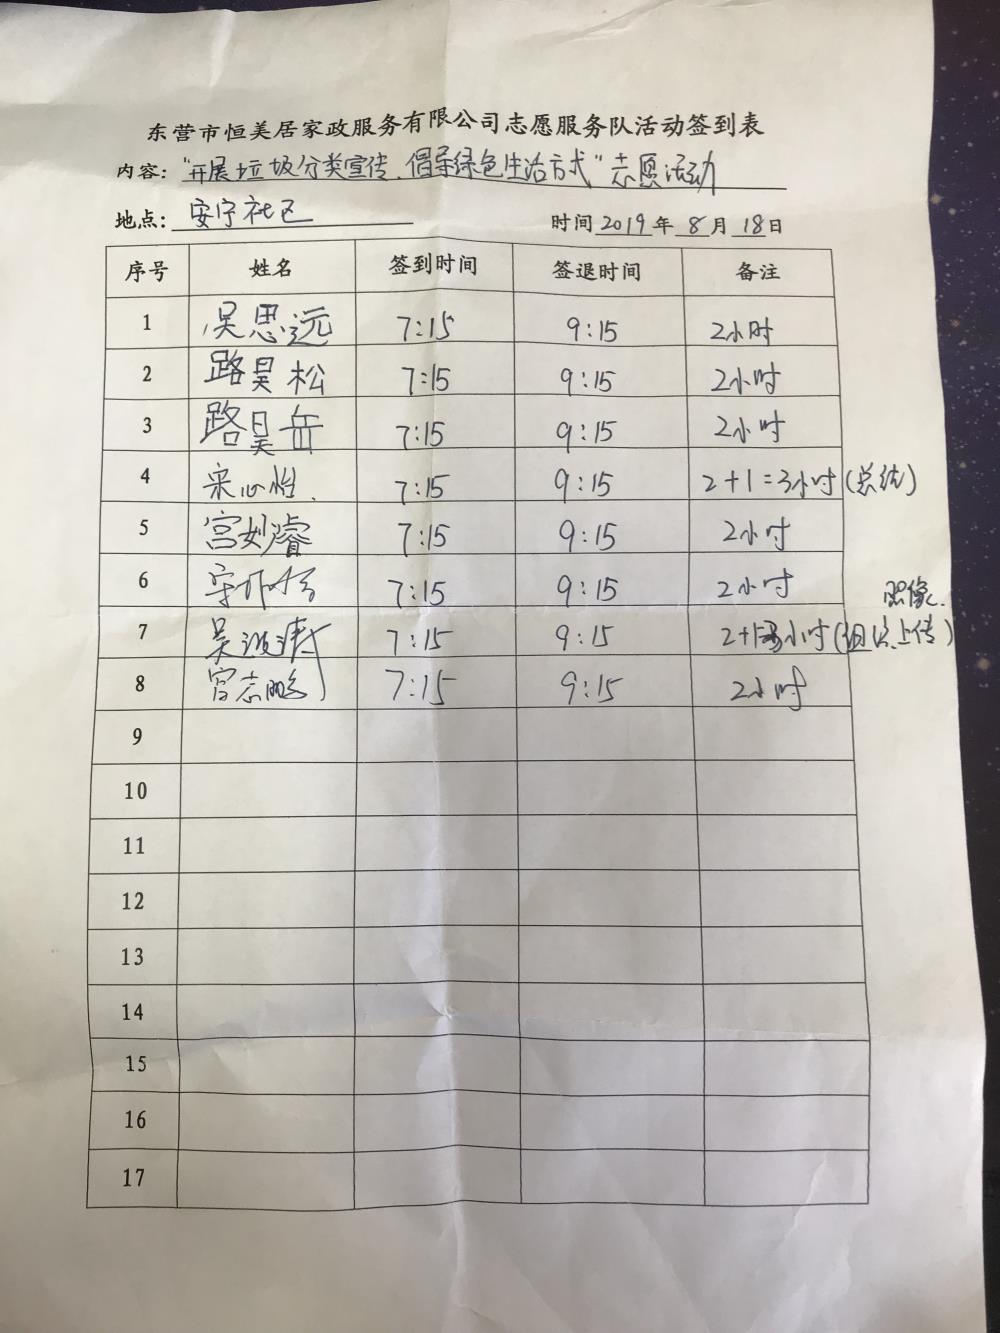 东营市恒美居家政服务有限公司志愿服务队活动签到表
内容："开展垃圾分类宣传、倡导绿色生活方式"志愿活动
地点：安宁社区 时间 2019 年 8 月 18 日
序号 姓名 签到时间 签退时间 备注
1 吴思远 7:15 9:15 2小时
2 路昊松 7:15 9:15 2小时
3 路昊岳 7:15 9:15 2小时
4 宋心怡 7:15 9:15 2+1=3小时(总结)
5 宫妙睿 7:15 9:15 2小时
6 7:15 9:15 2小时
照像、
7 吴 7:15 9:15 2+1=3小时(组织上传)
8 宫志鹏 7:15 9:15 2小时
9
10
11
12
13
14
15
16
17